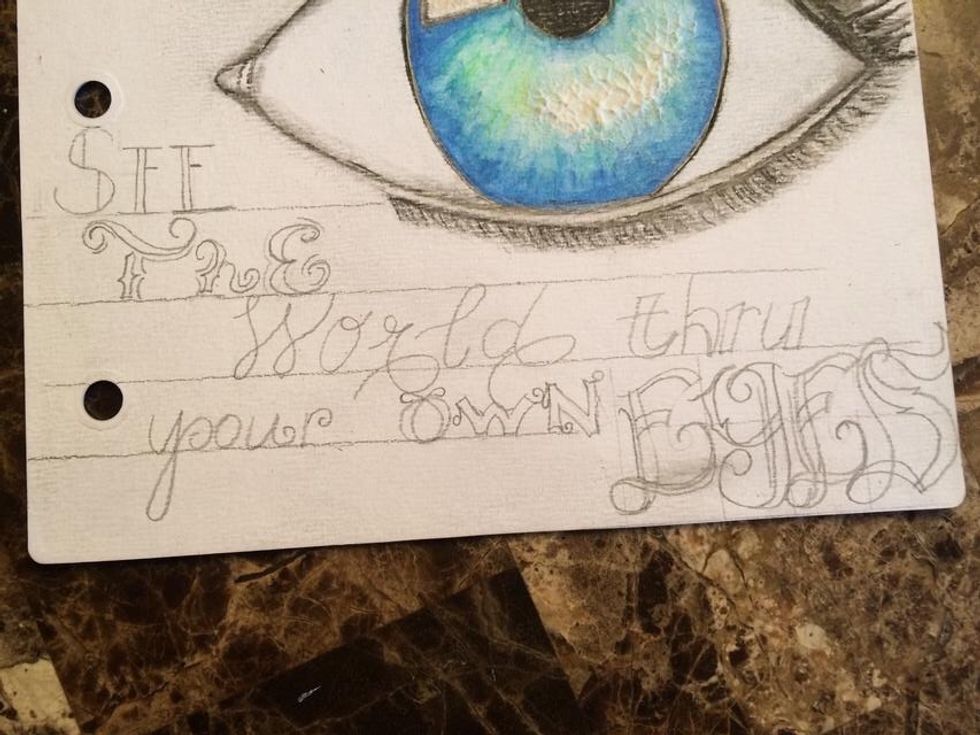 SEE
ThE
World thru
your OWN EYES